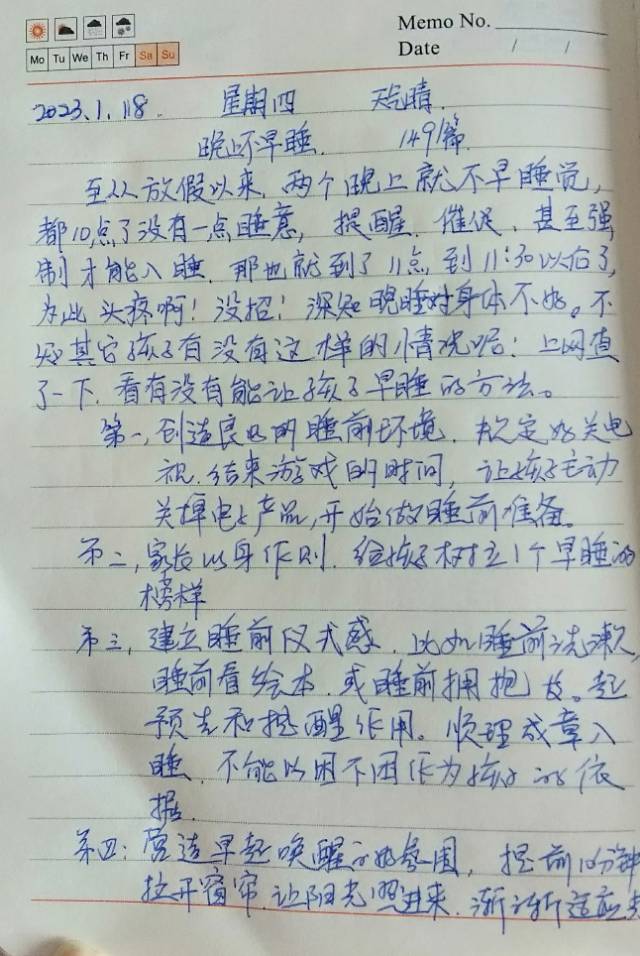 Memo No.
Date / /
Mo Tu We Th Fr Sa Su
2023.1.18. 星期四 天气晴.
晚上不早睡. 1491篇
至从放假以来,两个晚上就不早睡觉,
都10点了没有一点睡意,提醒.催促.甚至强
制才能入睡.那也就到了11点到11:30以后了,
为此头疼啊!没招!深知晚睡对身体不好。不
知其它孩子有没有这样的情况呢!上网查
了一下.看有没有能让孩子早睡的方法。
第一,创造良好的睡前环境.规定好关电
视.结束游戏的时间,让孩子主动
关掉电子产品,开始做睡前准备。
第二,家长以身作则.给孩子树立1个早睡的
榜样
第三,建立睡前仪式感.比如睡前洗漱,
睡前看绘本.或睡前拥抱 。起
预先和提醒作用。顺理成章入
睡.不能以困不困作为孩子的依
据.
第四:营造早起唤醒的好氛围,提前10分钟
拉开窗帘.让阳光照进来.渐渐适应